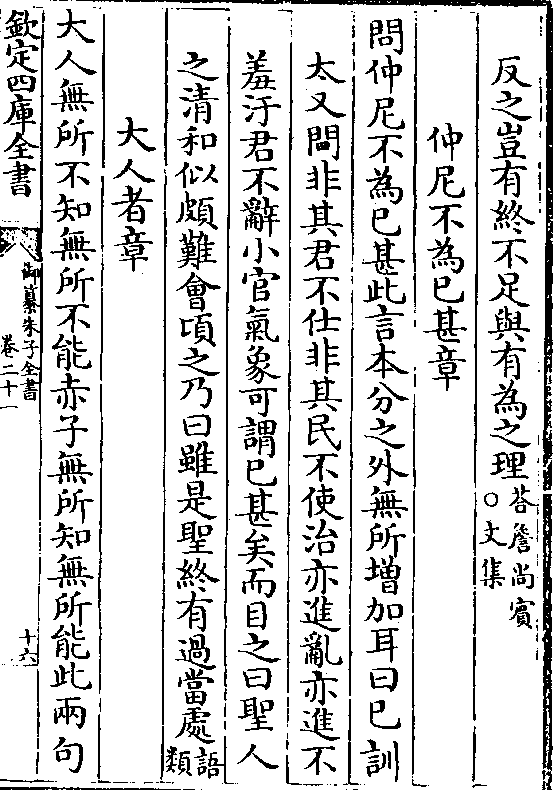 反之豈有終不足與有為之理答詹尚賓○文集
仲尼不為已甚章
問仲尼不為已甚此言本分之外無所增加耳曰已訓
太又問非其君不仕非其民不使治亦進亂亦進不
羞汙君不辭小官氣象可謂已甚矣而目之曰聖人
之清和似頗難會頃之乃曰雖是聖終有過當處語類
大人者章
大人無所不知無所不能赤子無所知無所能此兩句
欽定四庫全書
御纂朱子全書
卷二十一
十六